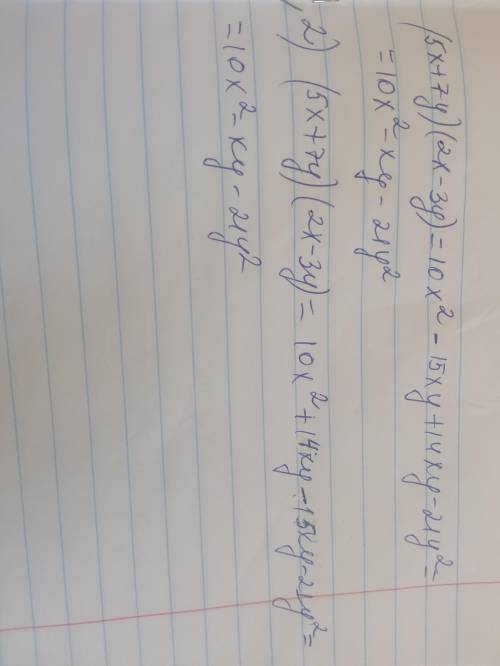 (5x+7y)(2x-3y)=10x²-15xy+14xy-21y²=
=10x²-xy-21y²
2) (5x+7y)(2x-3y)= 10x²+14xy-15xy-21y²=
=10x²-xy-21y²